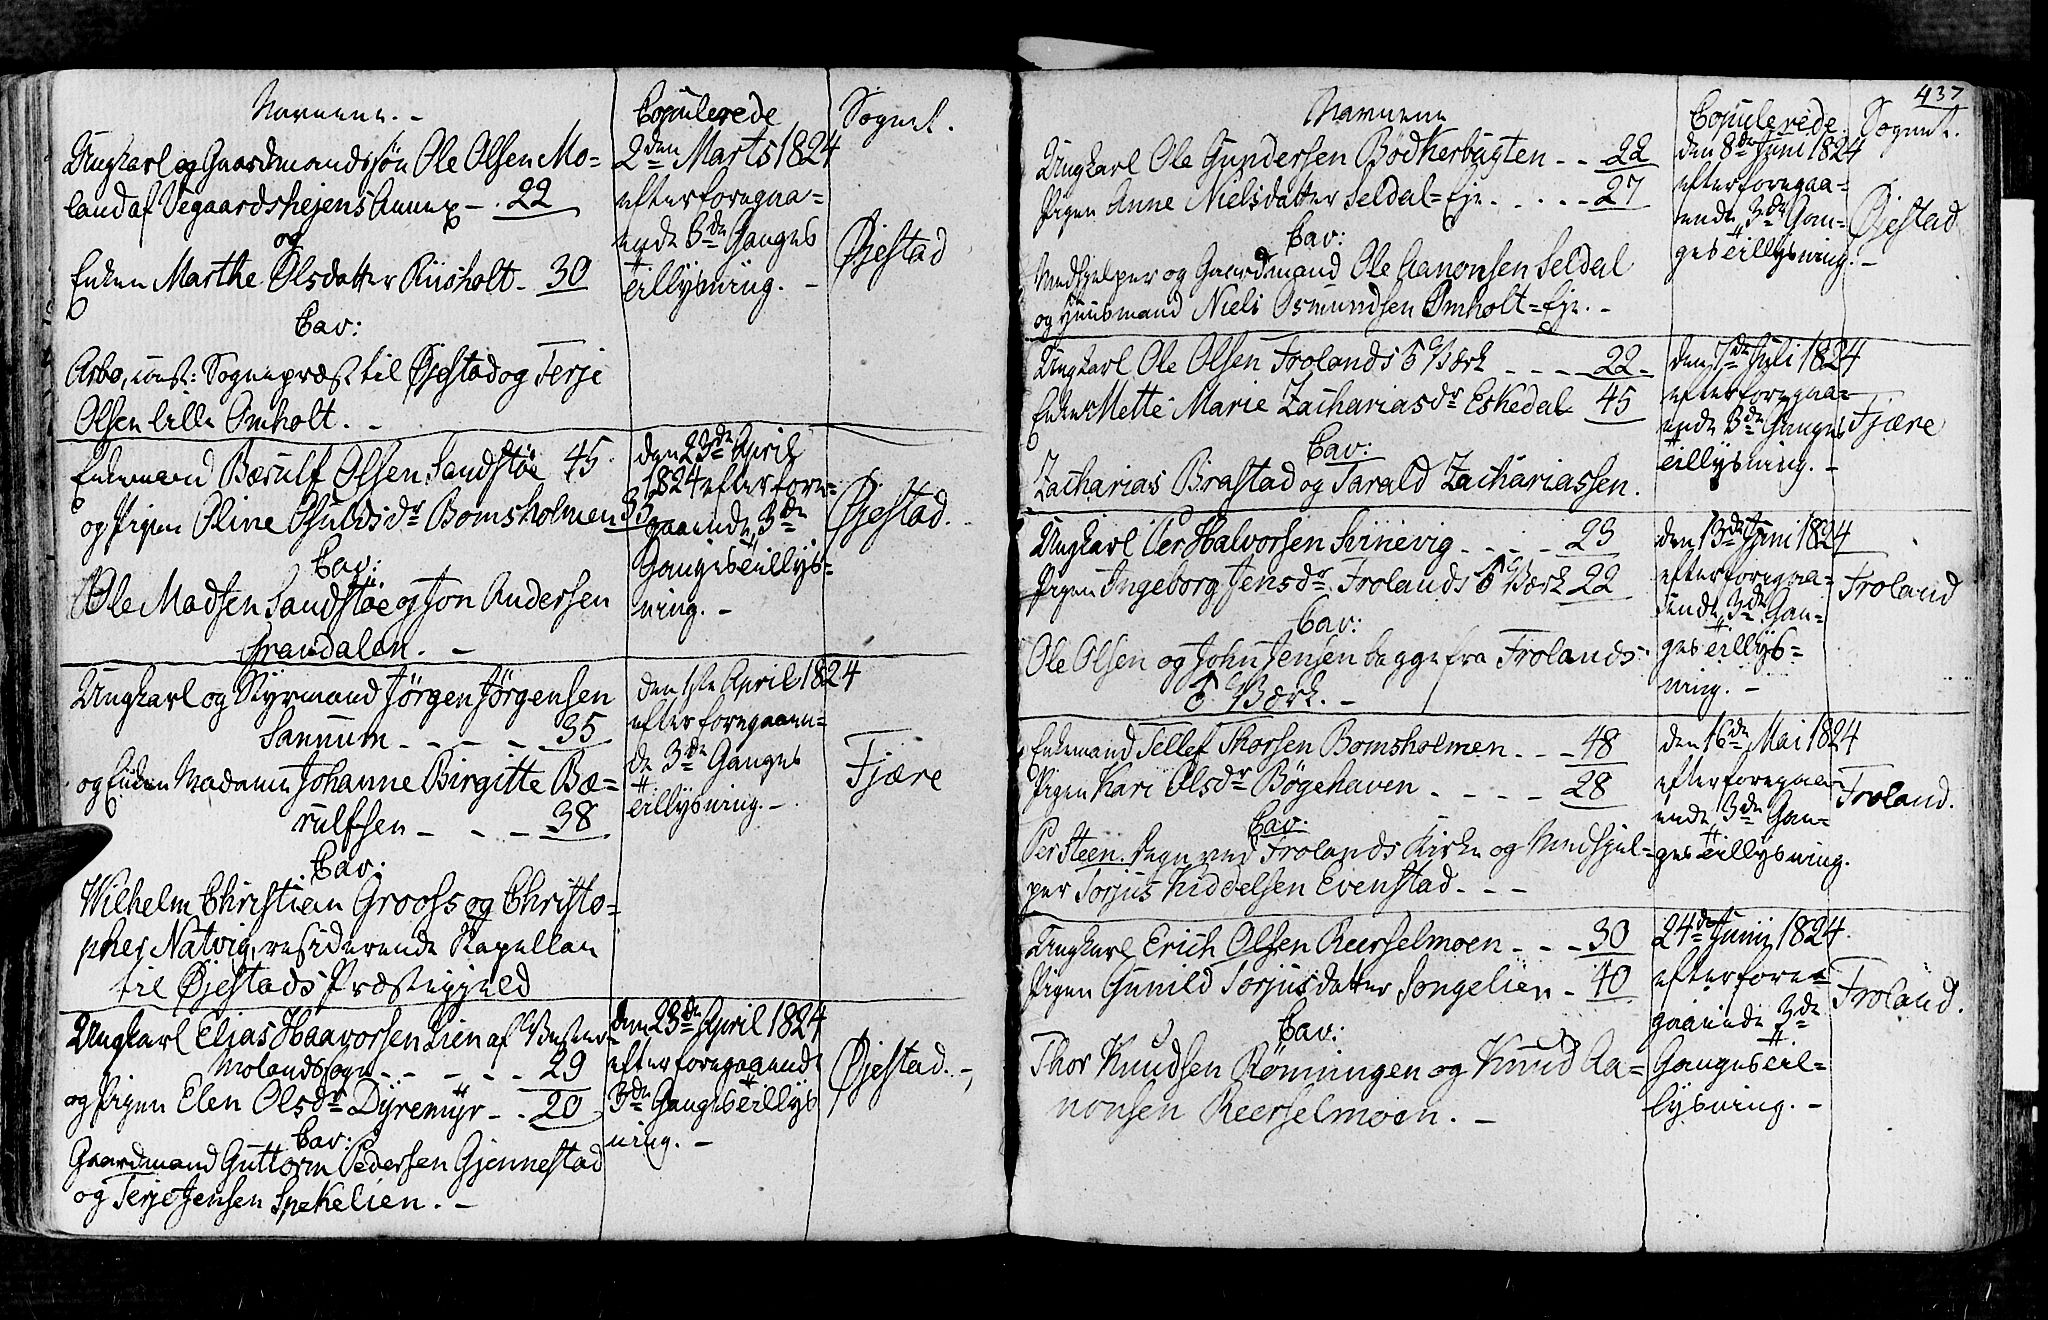 Navnene. -
Copulerede
Sognet.
Ungkarl og Gaardmandssøn Ole Olsen Mo=
land af Vegaardshejens Annex - . 22
og
Enken Marthe Olsdatter Riisholt - 30
Cav:
Arbo, const: Sognepræst til Øjestad og Terje
Olsen lille Omholt. -
2den Marts 1824
efter foregaa=
ende 3de Ganges
tillysning. -
Øjestad
Enkemand Bærulf Olsen Sandstøe 45.
og Pigen Oline Osulds dr Bomsholmen 35
Cav:
Ole Madsen Sandstøe og Jon Andersen
Grandalen. -
den 23de April
1824 efter fore=
gaaende 3de
Ganges tillys=
ning. -
Øjestad.
Ungkarl og Styrmand Jørgen Jørgensen
Sannum - - - - 35
og Enken Madame Johanne Birgitte Bæ=
rulfsen - - - 38
Cav:
Wilhelm Christian Grooss og Christo=
pher Natvig, residerende Kapellan
til Øjestads Præstegjeld
den 1ste April 1824
efter foregaaen=
de 3de Ganges
tillysning. -
Fjære
Ungkarl Elias Haavorsen Lien af Vester=
Molands sogn - - - - - 29
og Pigen Elen Olsdr Dyremyr - . 20
Cav:
Gaardmand Guttorm Pedersen Gjennestad
og Terje Jensen Spekelien. -
den 23de April 1824
efter foregaaende
3de Ganges tillys
ning. -
Øjestad. -
437
Navnene
Copulerede
Sognet.
Ungkarl Ole Gundersen Bödkerbugten - - 22
Pigen Anne Nielsdatter Seldal=Eje. - - - 27
Cav:
Medhjelper og Gaardmand Ole Aanonsen Seldal
og Huusmand Niels Osmundsen Omholt=Eje. -
den 8de Juni 1824
efter foregaa=
ende 3de Gan=
ges tillysning. -
Øjestad
Ungkarl Ole Olsen Frolands ♂ Værk - - - - 22 -
Enken Mette Marie Zacharias dr Eskedal 45
Cav:
Zacharias Brastad og Tarald Zachariassen.
den 7de Juli 1824
efter foregaa=
ende 3de Ganges
tillysning. -
Fjære
Ungkarl Per Halvorsen Svinevig - - - - 23
Pigen Ingeborg Jensdr Frolands ♂ Værk 22
Cav:
Ole Olsen og John Jensen begge fra Frolands
♂ Værk. -
den 13de Juni 1824
efter foregaa=
ende 3de Gan=
ges tillys=
ning. -
Froland
Enkemand Tellef Thorsen Bomsholmen - - - 48
Pigen Kari Olsdr Bøgehaven - - - - 28
Cav:
Per Steen. Degn ved Frolands Kirke og Medhjel=
per Torjus Kiddelsen Evenstad - - -
den 16de Mai 1824
efter foregaa
ende 3de Gan=
ges tillysning.
Froland.
Ungkarl Erich Olsen Reerselmoen - - - 30
Pigen Gunild Torjusdatter Songelien - 40
Cav:
Thor Knudsen Rømningen og Knud Aa=
nonsen Reerselmoen. -
24de Junii 1824.
efter fore=
gaaende 3de
Ganges til=
lysning. -
Froland.